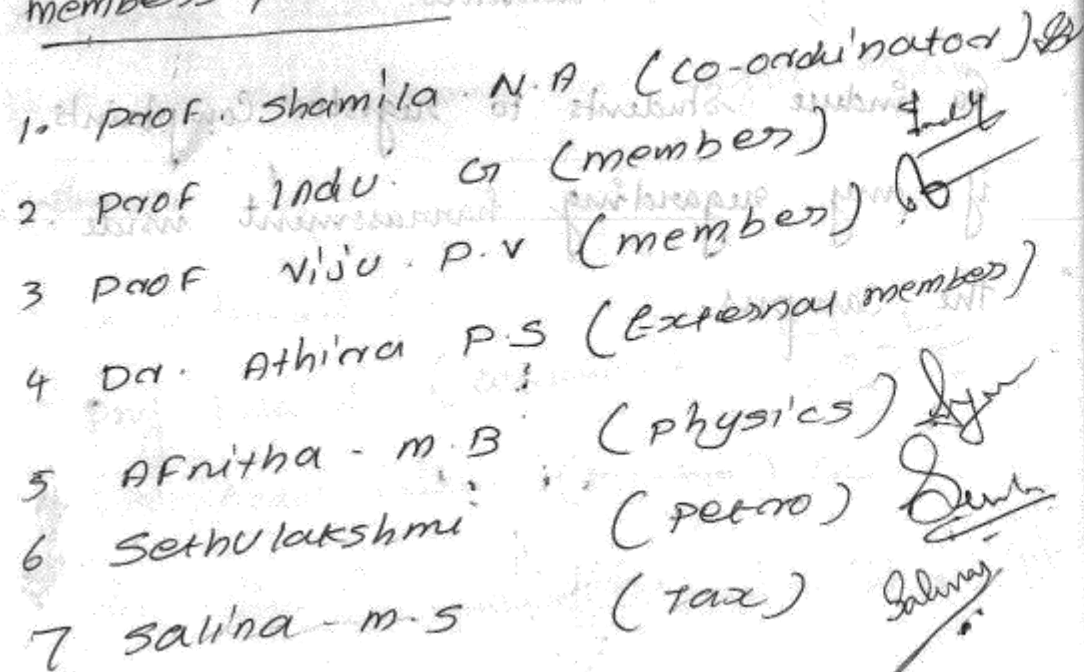 members
1. Prof. Shamila. N.A (co-ordinator)
2. Prof Indu. G (member)
3 Prof Viju. P.V (member)
4 Dr. Athira P.S (External member)
5 Afnitha - M.B (physics)
6 Sethulakshmi (petro)
7 Salina - M.S (Tax)